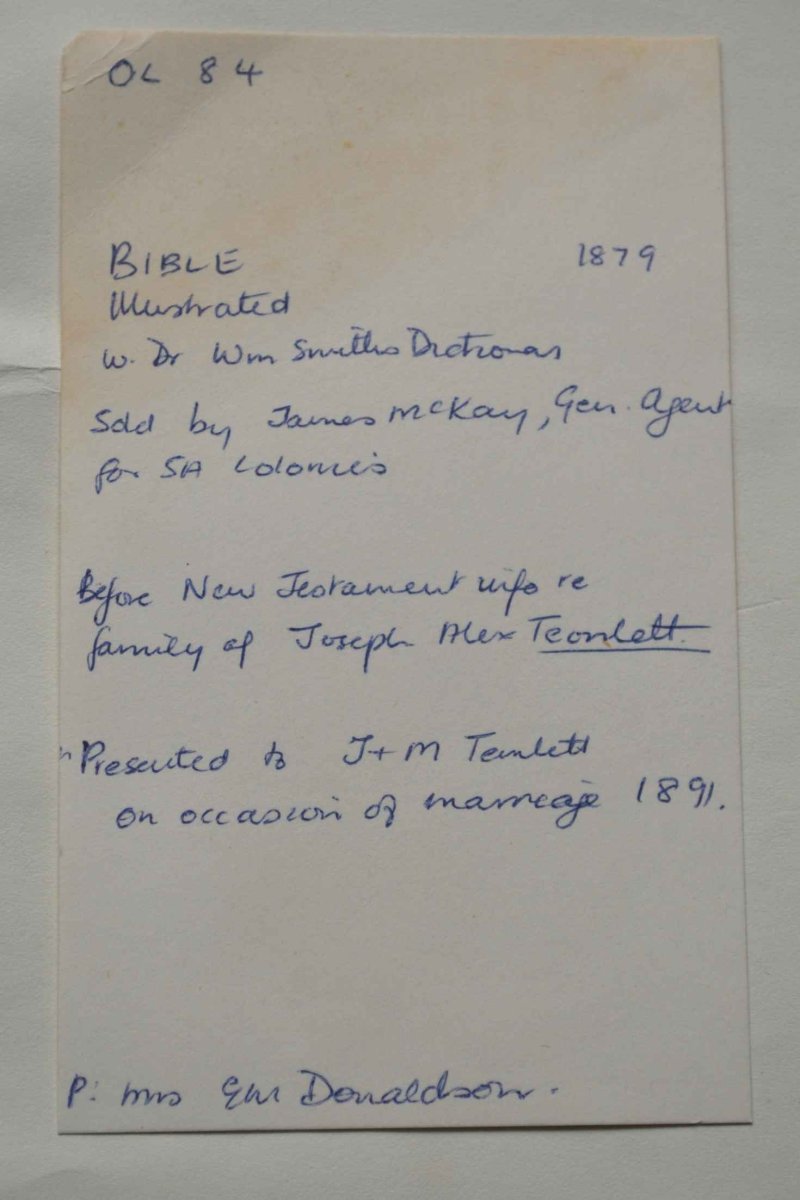 OL 84
BIBLE 1879
Illustrated
w. Dr Wm Smiths Dictionary
Sold by James McKay, Gen. Agent
for SA Colonies
Before New Testament info re
family of Joseph Alex
Presented to J + M
on occasion of marriage 1891.
P: Mrs Donaldson.